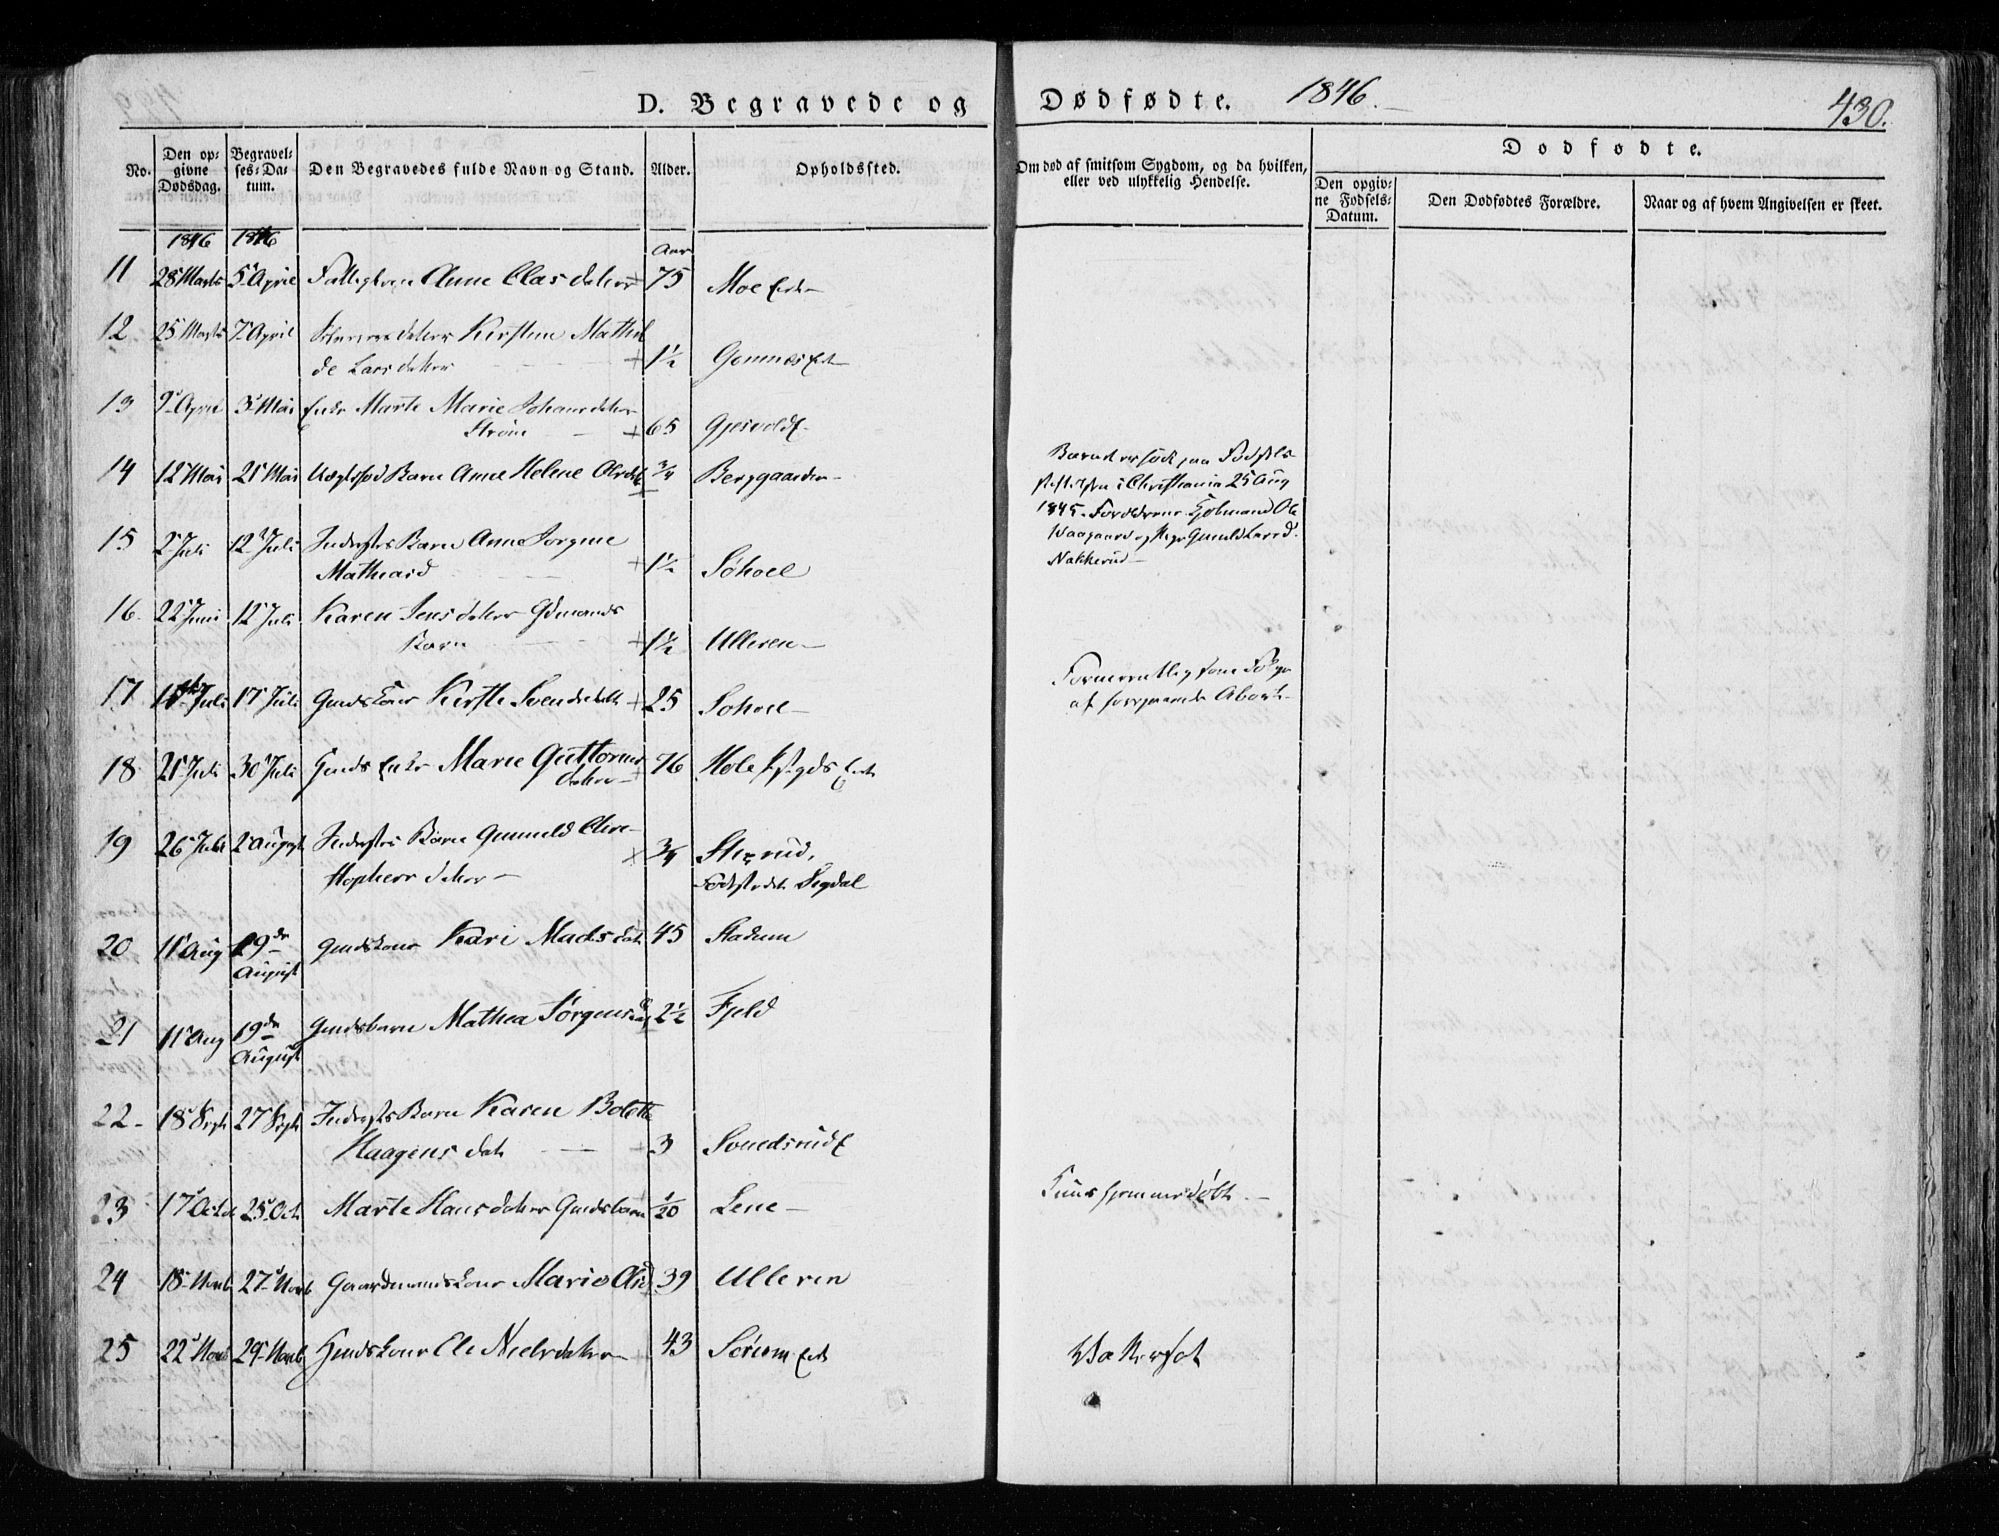 D. Begravede og Dødfødte. 1846.
430.
No.
Den op-
givne
Dødsdag.
Begravel-
ses-Da-
tum.
Den Begravedes fulde Navn og Stand.
Alder.
Opholdssted.
Om død af smitsom Sygdom, og da hvilken,
eller ved ulykkelig Hendelse.
Dødfødte.
Den opgiv-
ne Fødsels-
Datum.
Den Dødfødtes Forældre.
Naar og af hvem Angivelsen er skeet.
1846 1846 Aar
11 28 Marts 5 April Anne Clasdatter 75 Moe
12 25 Marts 7 April Kirstine Mathil
de Larsdatter 1½
13 9 April 3 Mai Enke Marte Marie Johansdatter
Strøm 65
14 12 Mai 21 Mai Uægtefød Barn Anne Helene Olsdtr ¾ Berggaarden
Barnet er født paa Fødsels
stiftelsen i Christiania 25 Aug
1845. Forældrene Ole
Waagaard og Pige Gunild Larsd.
Nakkerud
15 2 Juli 12 Juli Inderstes Barn Anne Jorgine
Matheasd 1½ Søhoel
16 22 Juni 12 Juli Karen Jensdatter Gdmands
Barn 1½ Ulleren
17 11 Juli 17 Juli Gmds Kone Kirsti Svendsdatt 25 Sohoel
Formeentlig som Følge
af foregaaende Abort
18 21 Juli 30 Juli Gmds Enke Marie Guttorms
datter 76 Hole
19 26 Juli 2 August Inderstes Barn Gunnild Chri-
stophersdatter ¾
Fødested Sigdal
20 11 Aug 19de
August Gmds Kone Kari Madsdat 45 Stadum
21 11 Aug 19de
August Gmdsbarn Mathea Jørgensdat 2½ Fjeld
22 18 Sept 27 Sept Inderstes Barn Karen Bolette
Haagensdat 3 Svendsrud
23 17 Octob 25 Oct Marte Hansdatter Gmdsbarn 1/20 Lene
hjemmedøbt
24 18 Novb 27 Novb Gaardmandskone Marie Olsd 39 Ulleren
25 22 Novb 29 Novb Hmds Kone Eli Nielsdatter 43 Sørum
Wattersot